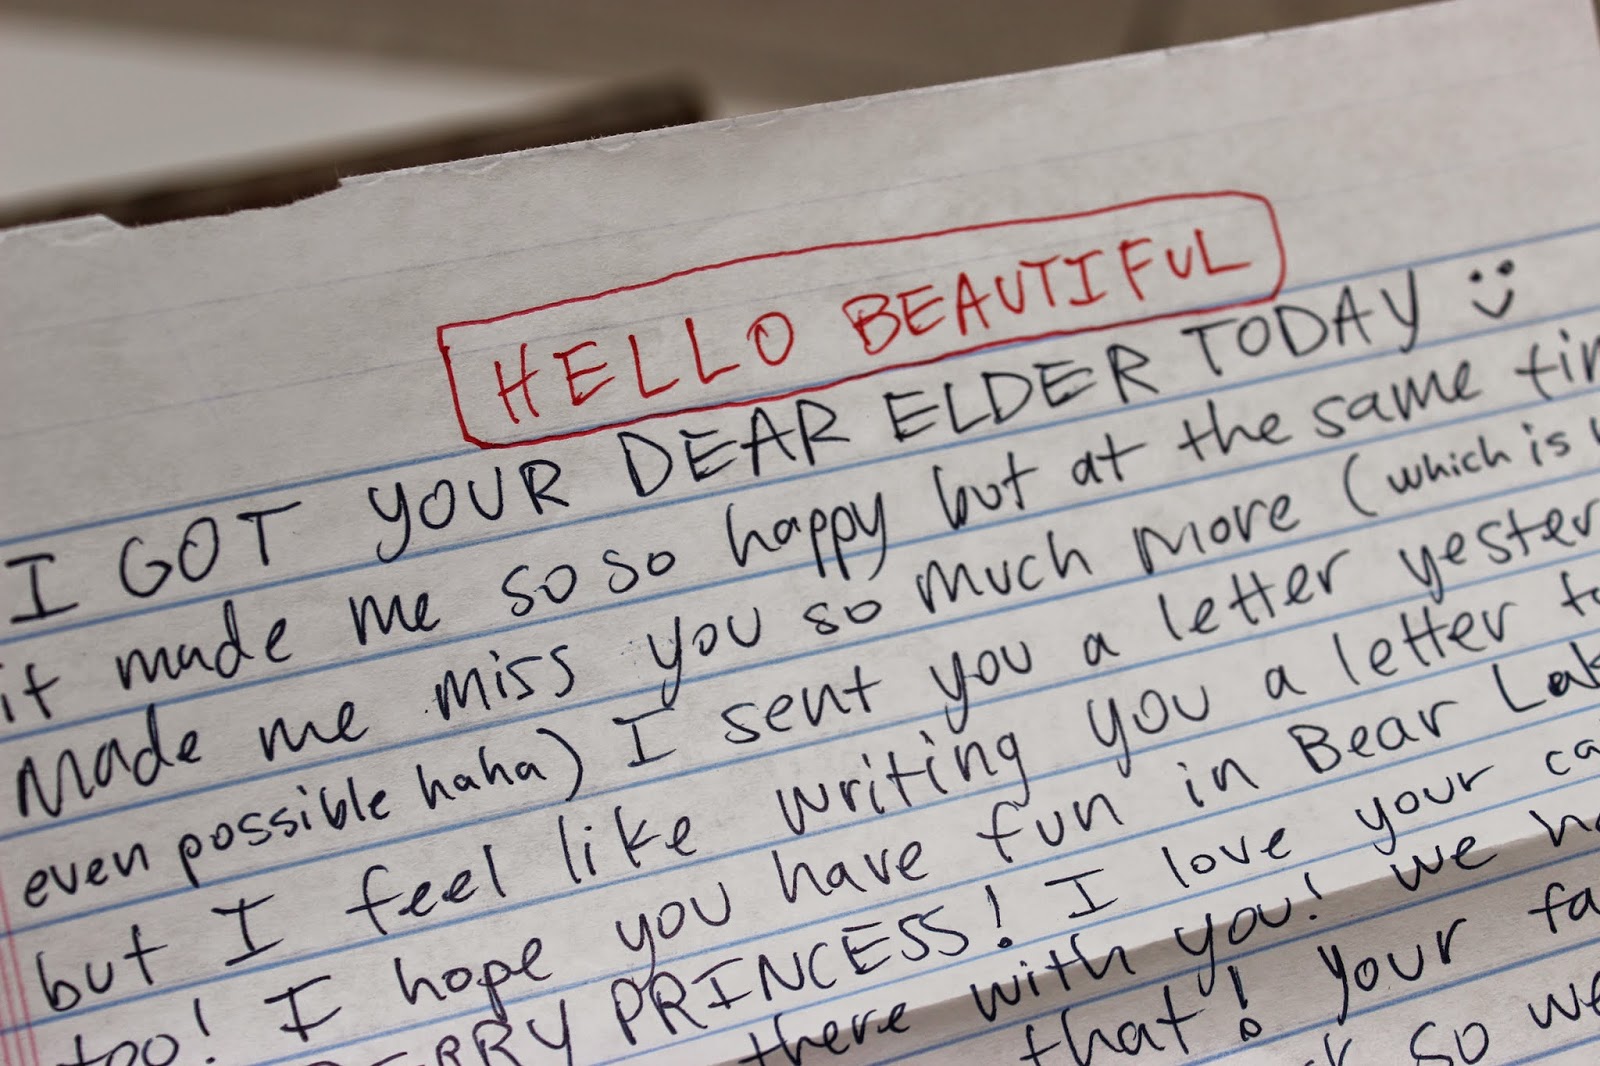 HELLO BEAUTIFUL
I GOT YOUR DEAR ELDER TODAY :)
it made me so so happy but at the same
made me miss you so much more (which is
even possible haha) I sent you a letter
but I feel like writing you a letter
too! I hope you have fun in Bear
PRINCESS! I love your
there with you! we
that! your
so